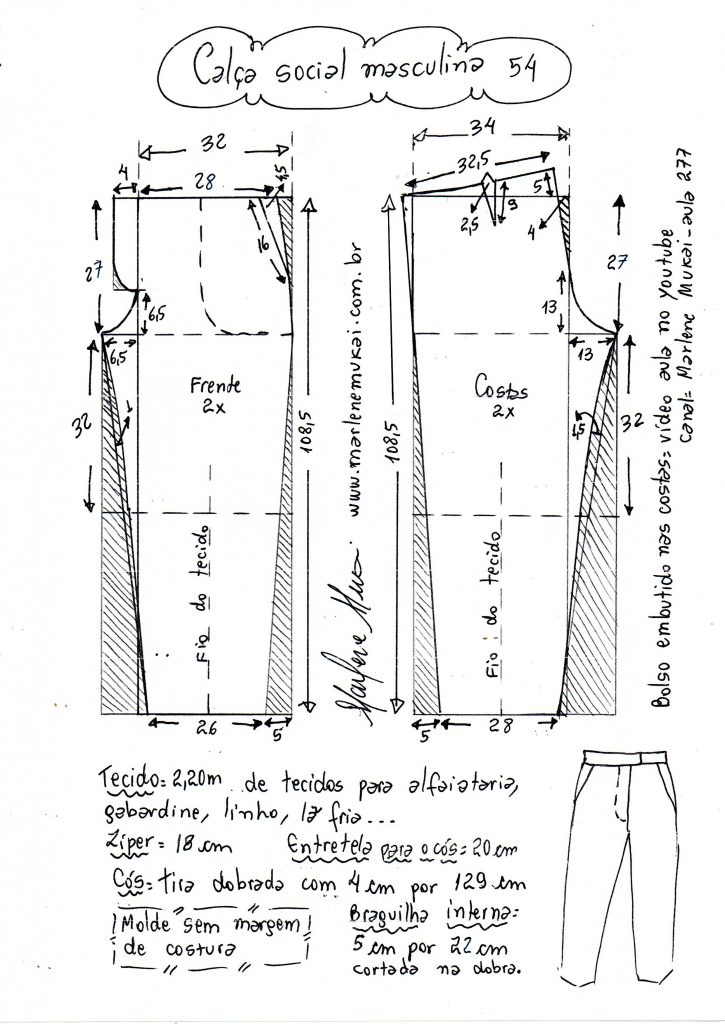 Calça social masculina 54
32
4
28
4,5
16
27
6,5
6,5
32
1
Frente
2x
Fio do tecido
108,5
26
5
www.marlenemukai.com.br
Marlene Mukai
34
32,5
5
2,5
9
4
27
13
13
108,5
Costas
2x
1,5
32
Fio do tecido
5
28
Bolso embutido nas costas= vídeo aula no youtube
canal= Marlene Mukai - aula 277
Tecido= 2,20m de tecidos para alfaiataria,
gabardine, linho, lã fria...
Zíper = 18 cm
Entretela para o cós= 20 cm
Cós= tira dobrada com 4 cm por 129 cm
Molde sem margem
de costura
Braguilha interna=
5 cm por 22 cm
cortada na dobra.